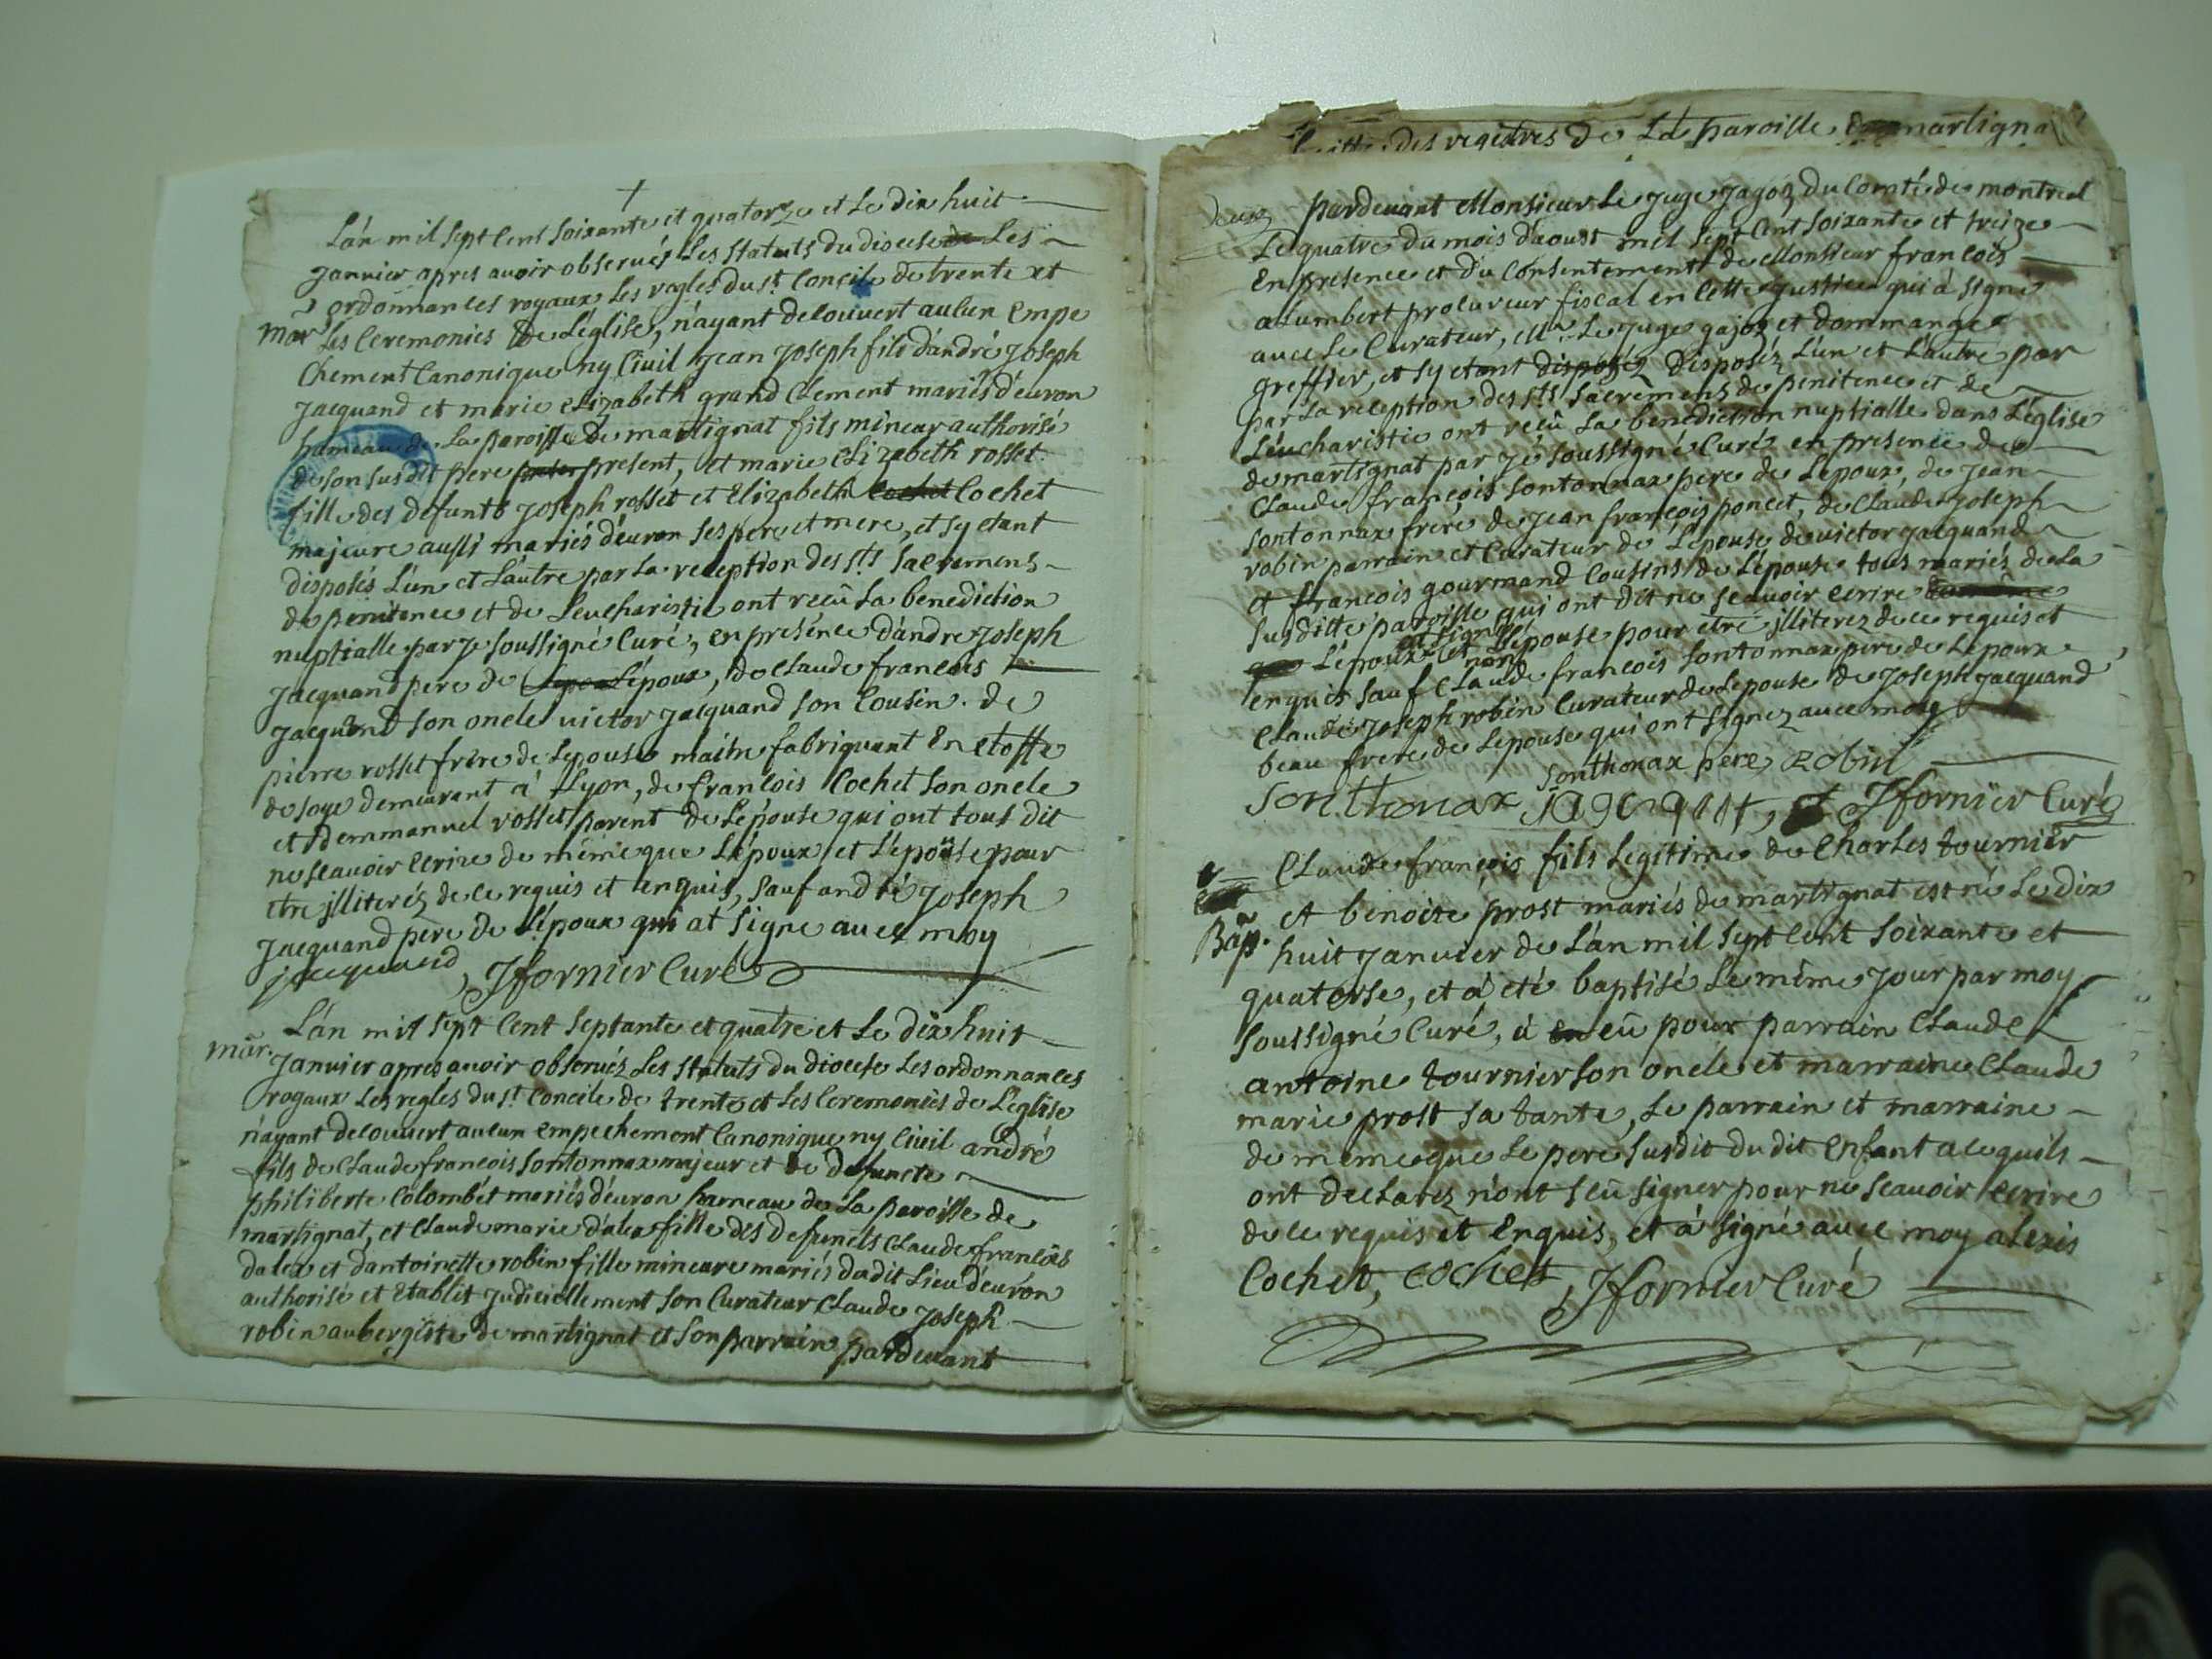 †
L'án mil sept Cent Soixante et quatorze et Le dix huit
Janvier apres avoir observéz Les Statuts du diocese Les
ordonnances royaux Les regles du st. Concile de trente et
mar Les Ceremonies De L'église, n'ayant decouvert aucun Empe
Chement Canonique ny Civil Jean Joseph fils d'andré Joseph
Jacquand et marie elizabeth grand Clement mariés d'evron
hameau de La paroisse de martignat fils mineur authorisé
de son susdit pere present, et marie elizabeth rosset
fille des defunts Joseph rosset et Elizabeth Cochet Cochet
majeure aussi mariés d'evron ses pere et mere, et sy etant
disposés L'un et L'autre par La reception des sts Sacremens
de penitence et de L'eucharistie ont reçû La benediction
nuptialle par je soussigné Curé, en presénce d'andre Joseph
Jacquand pere de L'époux, de Claude francois
Jacquand son oncle victor Jacquand son Cousin de
pierre rosset frere de Lepouse maitre fabriquant En etoffe
de soye demeurant à Lyon, de francois Cochet son oncle
et demmanuel rosset parent de L'épouse qui ont tous dit
ne scavoir ecrire de même que L'époux et L'épouse pour
etre jlliteréz de ce requis et enquis, sauf andré Joseph
Jacquand père de L'époux qui at signe avec moy
jacquand, Jfornier Curé
L'án mil sept Cent septante et quatre et Le dix huit
mar. Janvier apres avoir observéz Les statuts du diocese Les ordonnances
royaux Les regles du st. Concile de trente et Les Ceremonies de L'eglise
n'ayant decouvert aucun empechement Canonique ny Civil andré
fils de Claude francois sontonnax majeur et de defuncte
philiberte Colombét mariés d'evron hameau de La paroisse de
martignat, et Claude marie d'alex fille des defuncts Claude francois
dalex et dantoinette robin fille mineure mariés dudit Lieu d'evron
authorisé et Etablit judiciellement son Curateur Claude Joseph
robin aubergiste de martignat et son parrain pardevant
Suitte des registres de La paroisse martigna
deux pardevant Monsieur Le Juge Jagoz du Comté de montreal
Le quatre du mois d'aoust mil sept Cent soixante et treize
En presence et du Consentement de Monsieur francois
alumbert procureur fiscal en Cette justice qui á signé
avec Le Curateur, Mr. Le Juge gajoz et dommange
greffier, et sy etant disposéz Disposéz L'un et L'autre par
par La reception des sts Sacremens de penitence et de
L'eucharistie ont reçû La benediction nuptialle dans L'église
de martignat par jé soussigné Curé en presence de
Claude françois sontonnax pere de Lepoux, de Jean
sontonnax frere de Jean françois poncet, de Claude Joseph
robin parrain et Curateur de L'epouse de victor jacquand
et francois gourmand Cousins de L'épouse tous mariés de La
susditte paroisse qui ont dit ne scavoir ecrire
at signé
L'époux et non L'épouse pour etre jlliterez de ce requis et
enquis sauf Claude francois sontonnax pere de Lepoux
Claude Joseph robin Curateur de Lepouse de Joseph Jacquand
beau frere de Lepouse qui ont signez avec moy
sonthonax pere, Robin
Sonthonax, jacquant, Jfornier Curé
Claude françois fils Legitime de Charles tournier
et benoite prost mariés de martignat est né Le dix
Bap. huit Janvier de L'án mil sept cent soixante et
quatorse, et á eté baptisé Le même jour par moy
soussigné Curé, á eû pour parrain Claude
antoine tournier son oncle et marraine Claude
marie prost sa tante, Le parrain et marraine
de meme que Le pere susdit du dit enfant a ce quils
ont declarez n'ont sçû signer pour ne scavoir ecrire
de ce requis et enquis, et á signé avec moy alexis
Cochet, cochet, Jfornier Curé